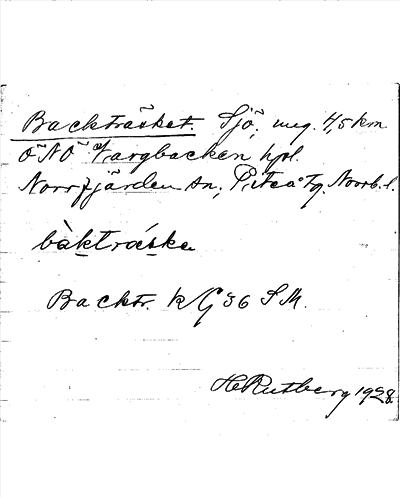 Backträsket. Sjö, meg. 4,5 km
ÖNÖ Vargbacken hpl.
Norrfjärden sn, Piteå tg. Norrb. l.
bàktrǽske
Backtr. kG 36 S.M.
H Rutberg 1928